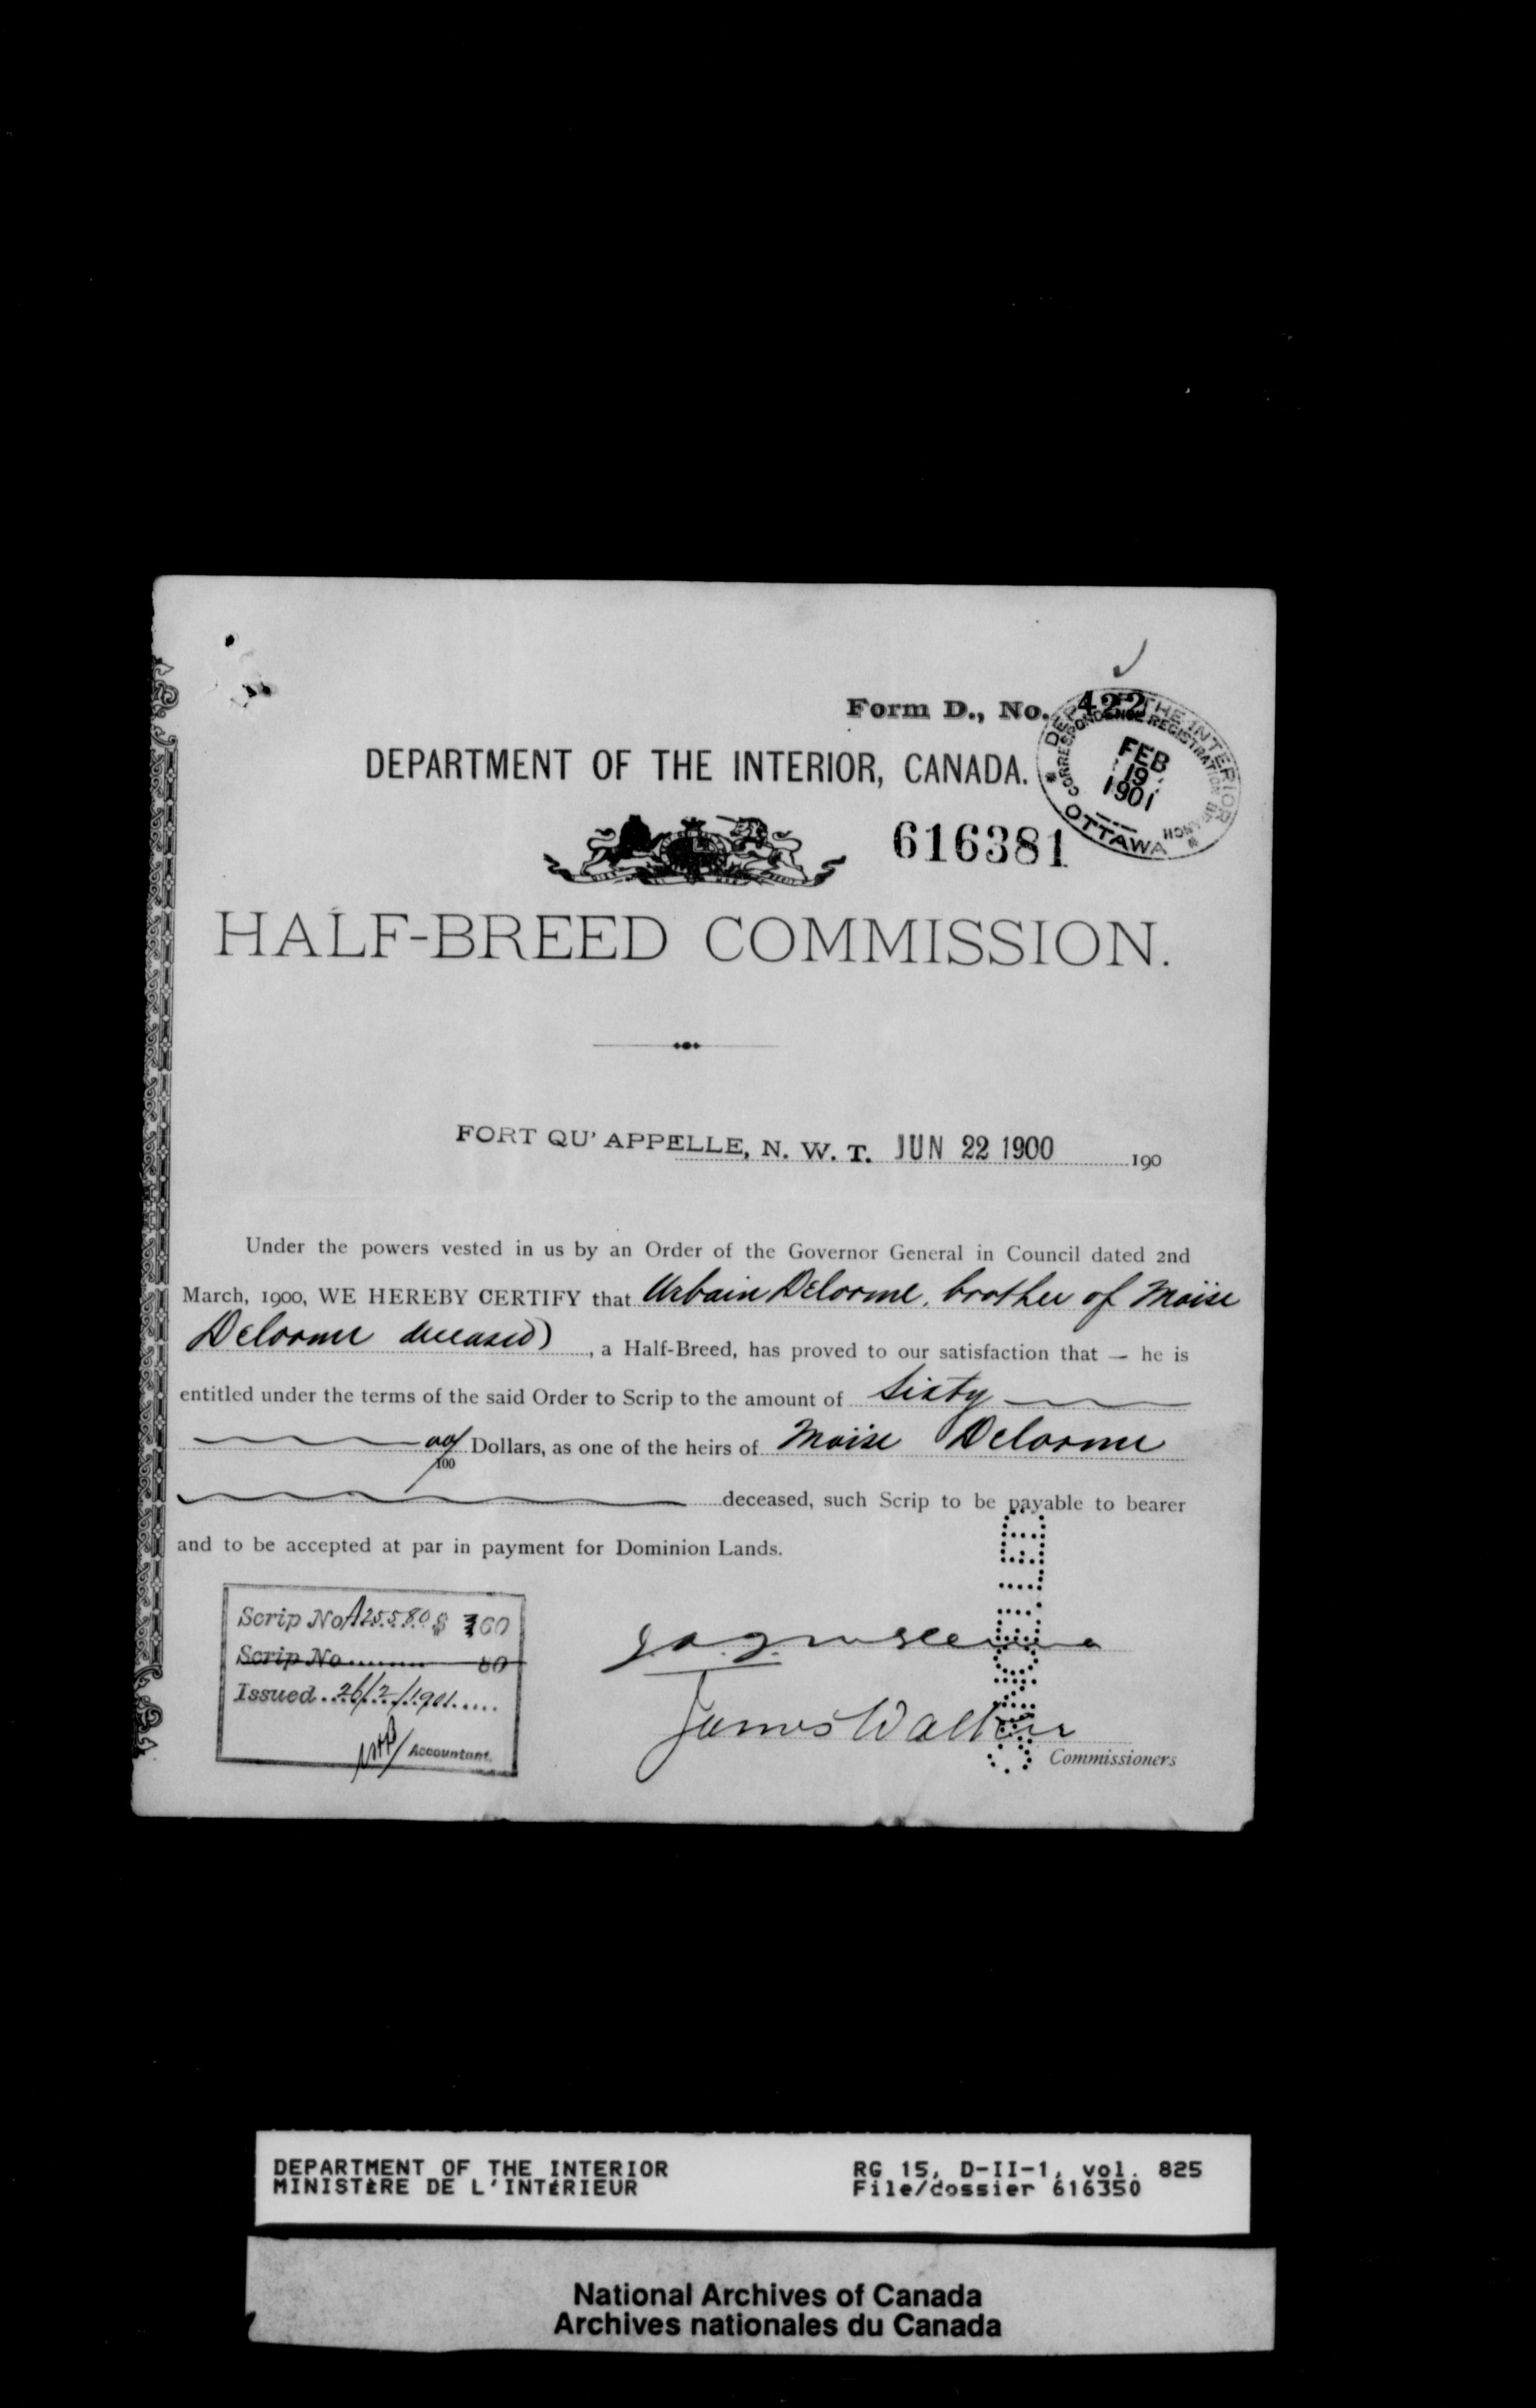 Form D., No. 422
DEPARTMENT OF THE INTERIOR, CANADA.
DEPT OF THE INTERIOR
CORRESPONDENCE REGISTRATION BRANCH
FEB
19
1901
OTTAWA
616381
HALF-BREED COMMISSION.
FORT QU'APPELLE, N. W. T. JUN 22 1900 190
Under the powers vested in us by an Order of the Governor General in Council dated 2nd
March, 1900, WE HEREBY CERTIFY that Urbain Delorme, brother of Moïse
Delorme deceased) , a Half-Breed, has proved to our satisfaction that — he is
entitled under the terms of the said Order to Scrip to the amount of Sixty
00/100 Dollars, as one of the heirs of Moïse Delorme
deceased, such Scrip to be payable to bearer
and to be accepted at par in payment for Dominion Lands.
Scrip No A25580 $ 60
Scrip No 80
Issued 26/2/1901
Accountant.
James Walker
Commissioners
CANCELLED
DEPARTMENT OF THE INTERIOR
MINISTÈRE DE L'INTÉRIEUR
RG 15, D-II-1, vol. 825
File/dossier 616350
National Archives of Canada
Archives nationales du Canada